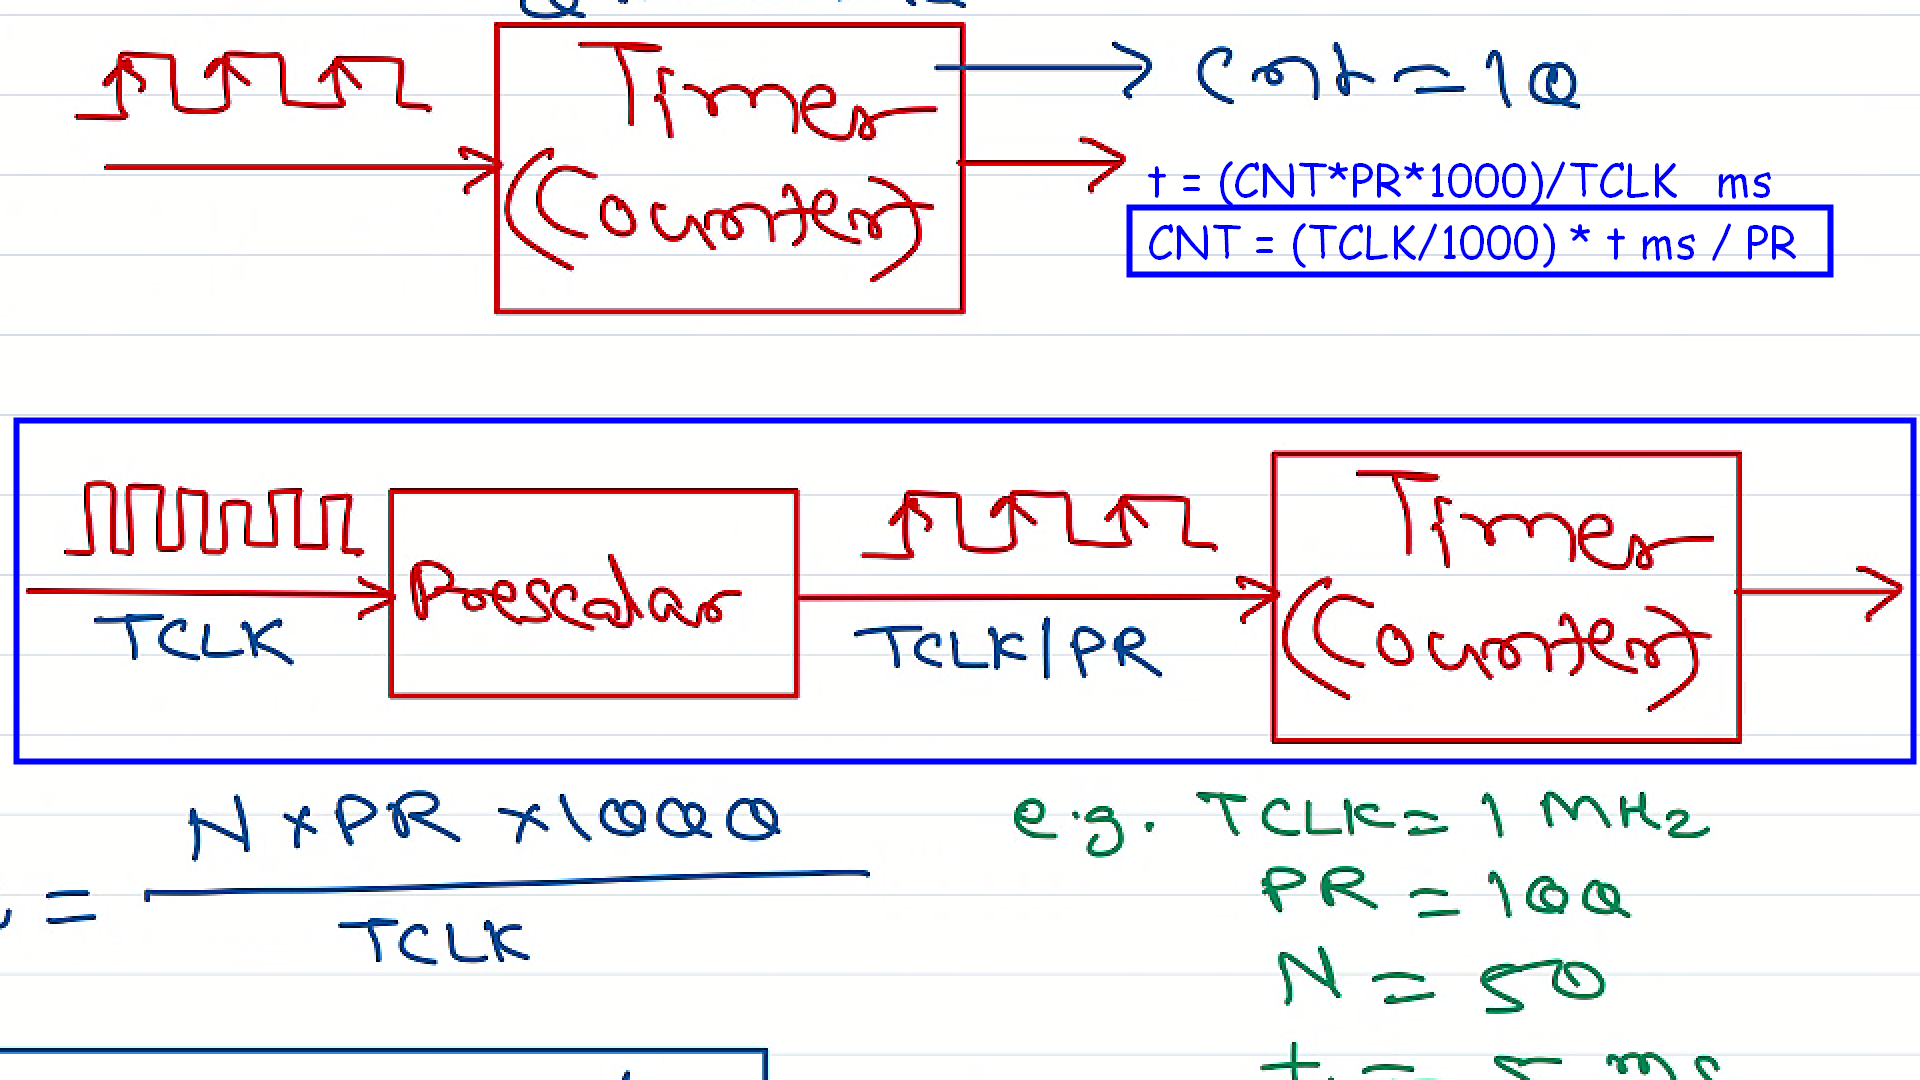 Timer
(Counter)
Cnt = 10
t = (CNT*PR*1000)/TCLK ms
CNT = (TCLK/1000) * t ms / PR
TCLK
Prescalar
TCLK/PR
Timer
(Counter)
= N x PR x 1000
TCLK
e.g. TCLK = 1 MHz
PR = 100
N = 50
t = 5 ms